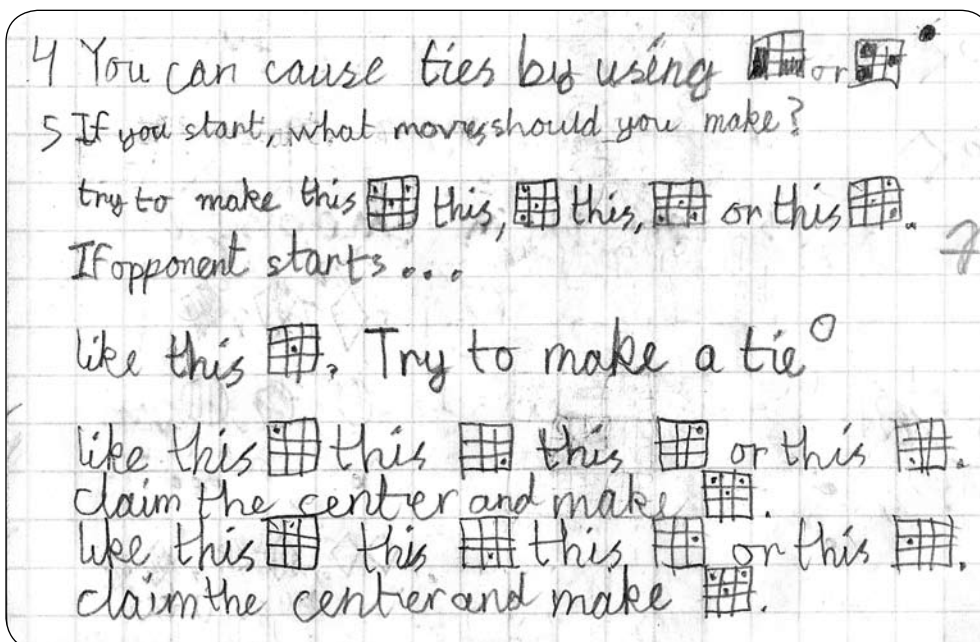 4 You can cause ties by using or
5 If you start, what moves should you make?
try to make this this, this, or this .
If opponent starts...
like this , Try to make a tie
like this this this or this .
claim the center and make .
like this this this or this .
claim the center and make .